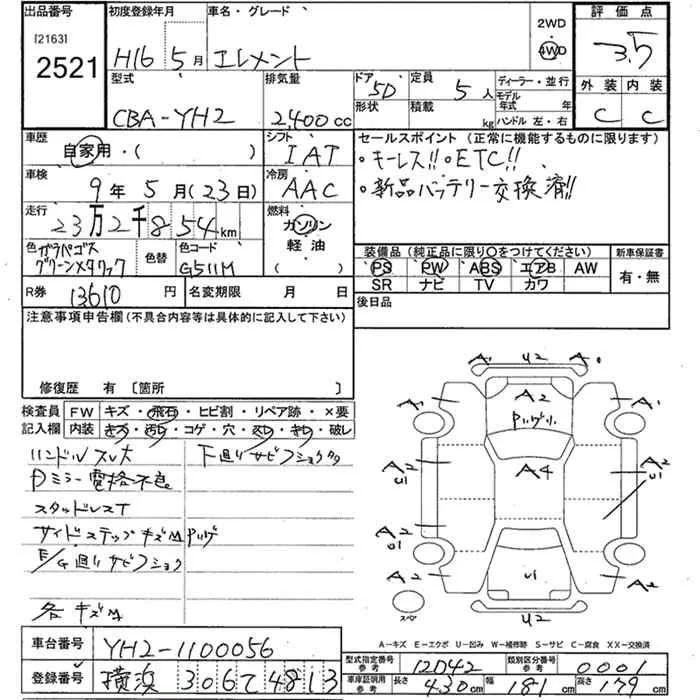 出品番号 初度登録年月 車名・グレード 2WD 評価点
[2163] H16 5月 エレメント 4WD 3.5
2521
型式 排気量 ドア 定員 ディーラー・並行 外装 内装
CBA-YH2 2400cc 5D 5人 モデル年式 年 C C
形状 積載 kg ハンドル 左・右
車歴 シフト セールスポイント(正常に機能するものに限ります)
自家用・( ) IAT ・キーレス!!・ETC!!
車検 冷房 ・新品バッテリー交換済!!
9年5月(23日) AAC
走行 燃料
23万2千854km ガソリン
軽油
( )
色 ガラパゴスグリーンメタリック 色替 色コード G511M
装備品(純正品に限り○をつけてください) 新車保証書
PS PW ABS エアB AW 有・無
SR ナビ TV カワ
R券 13610円 名変期限 月 日 後日品
注意事項申告欄(不具合内容等は具体的に記入して下さい)
修復歴 有 〔箇所 〕
検査員記入欄 FW キズ・飛石・ヒビ割・リペア跡・×要
内装 キズ・汚レ・コゲ・穴・スレ・キレ・破レ
ハンドルスレ大 下廻りサビフショク
Dミラー電格不良
スタッドレスT
サイドステップキズ
E/G廻りサビフショク
各キズ
A U2 A
A A2 A
A2 U1 A4 A2 U1
A2 U1
A2 U1 A2
U2
スペ
A-キズ E-エクボ U-凹み W-補修跡 S-サビ C-腐食 XX-交換済
車台番号 YH2-1100056
登録番号 横浜 306 て 4813
型式指定番号 参考 12042 類別区分番号 参考 0001
車庫証明用 参考 長さ 430cm 幅 181cm 高さ 179cm